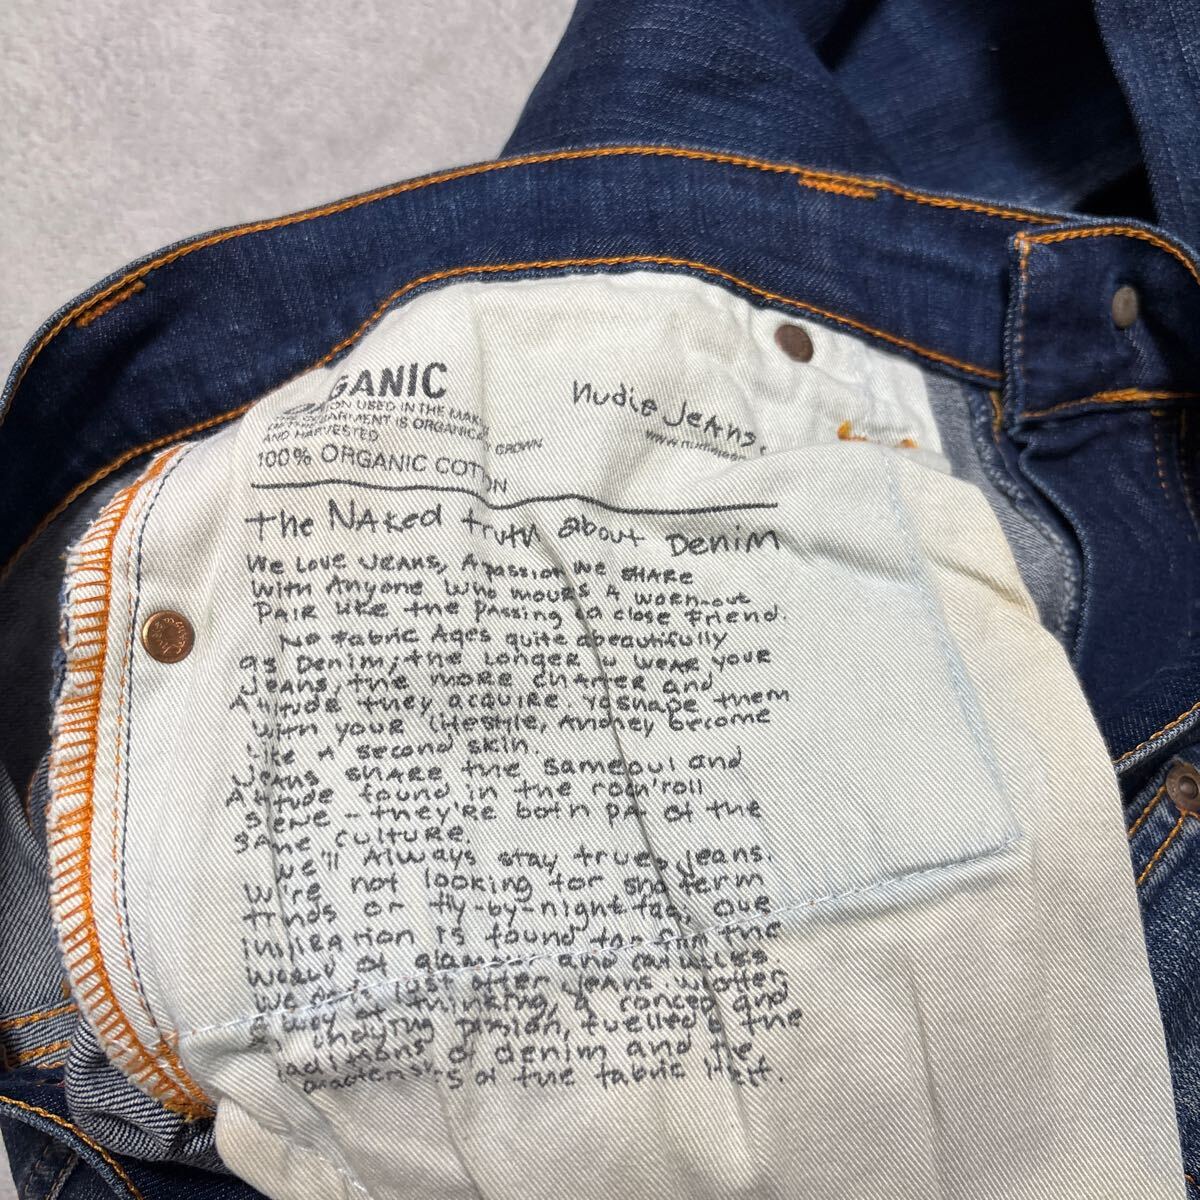 GANIC
ON USED IN THE MAK
ARMENT IS ORGANICA
AND HARVESTED GROWN
100% ORGANIC COT ON
nudie jeans.
The Naked truth about Denim
We Love Jeans, A passion we share
with Anyone who mours A worn-out
pair like the passing a close friend.
No fabric Ages quite abeautifully
as Denim, the longer u wear your
jeans, the more charter and
Attitude they acquire. Yo shape them
with your lifestile, And hey become
like A second skin.
Jeans share the same oul and
Attitude found in the rock'roll
scene - they're both pa of the
same culture.
we'll Always stay true jeans.
We're not looking for sho term
trends or fly-by-night fad, our
inspiration is found far from the
world of glamour and catwalks
just after jeans
way of thinking, a and
passion, fuelled the
traditions of denim and he
of the fabric itself